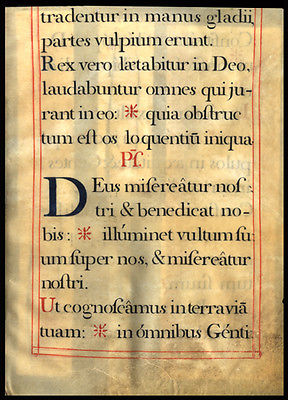 tradentur in manus gladii,
partes vulpium erunt.
Rex vero lætabitur in Deo,
laudabuntur omnes qui ju-
rant in eo: ⁕ quia obſtruc
tum eſt os loquentiū iniqua.
Pſ.
DEus miſereâtur noſ-
tri & benedicat no-
bis: ⁕ illúminet vultum ſu-
um ſuper nos, & miſereâtur
noſtri.
Ut cognoſcâmus in terra viā
tuam: ⁕ in ómnibus Génti